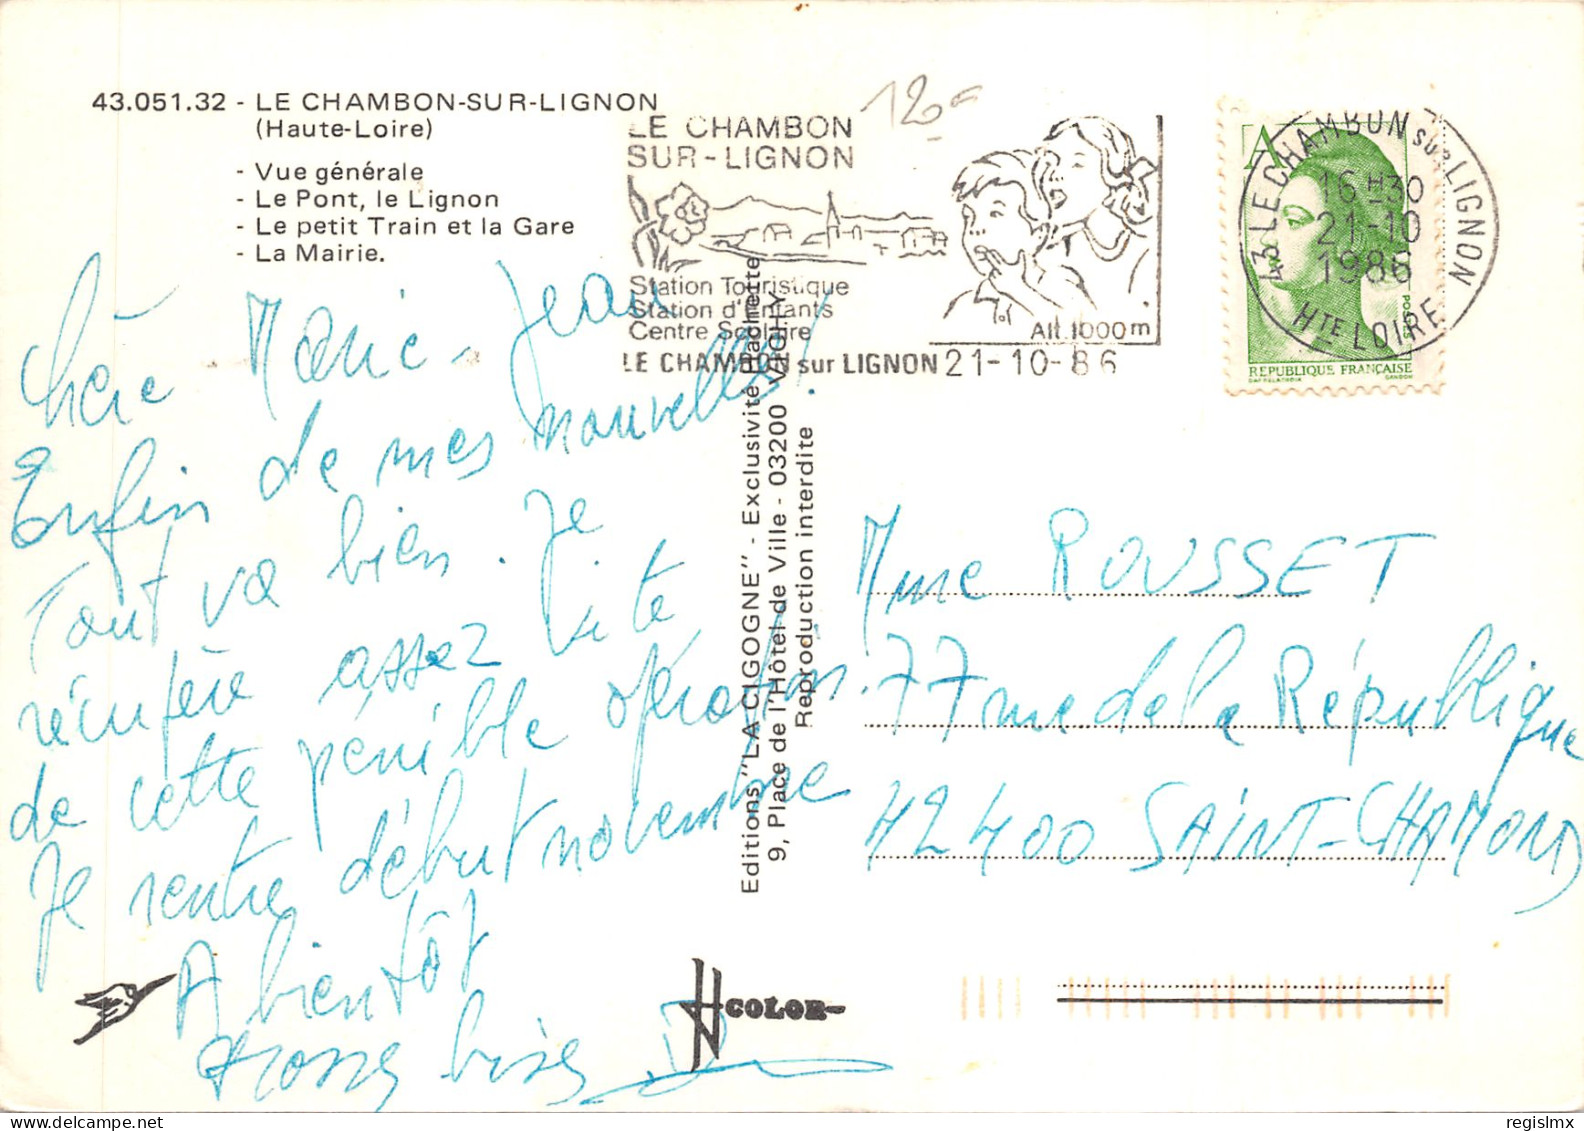 43.051.32 - LE CHAMBON-SUR-LIGNON
(Haute-Loire)
- Vue générale
- Le Pont, le Lignon
- Le petit Train et la Gare
- La Mairie.
120
LE CHAMBON
SUR-LIGNON
Station Touristique
Station d'Enfants
Centre Scolaire
Alt. 1000m
LE CHAMBON sur LIGNON 21-10-86
A
POSTES
REPUBLIQUE FRANÇAISE
GANDON
43 LE CHAMBON SUR LIGNON
16 H30
21-10
1986
HTE LOIRE
Chère Marie-Jeanne
Enfin de mes nouvelles!
Tout va bien. Je
récupère assez vite
de cette pénible opération.
Je rentre début novembre
A bientôt
Grosses bises
Editions "LA CIGOGNE" - Exclusivité Hachette
9, Place de l'Hôtel de Ville - 03200 VICHY
Reproduction interdite
Mme ROUSSET
77 rue de la République
42400 SAINT-CHAMOND
H COLOR
regislmx
delcampe.net